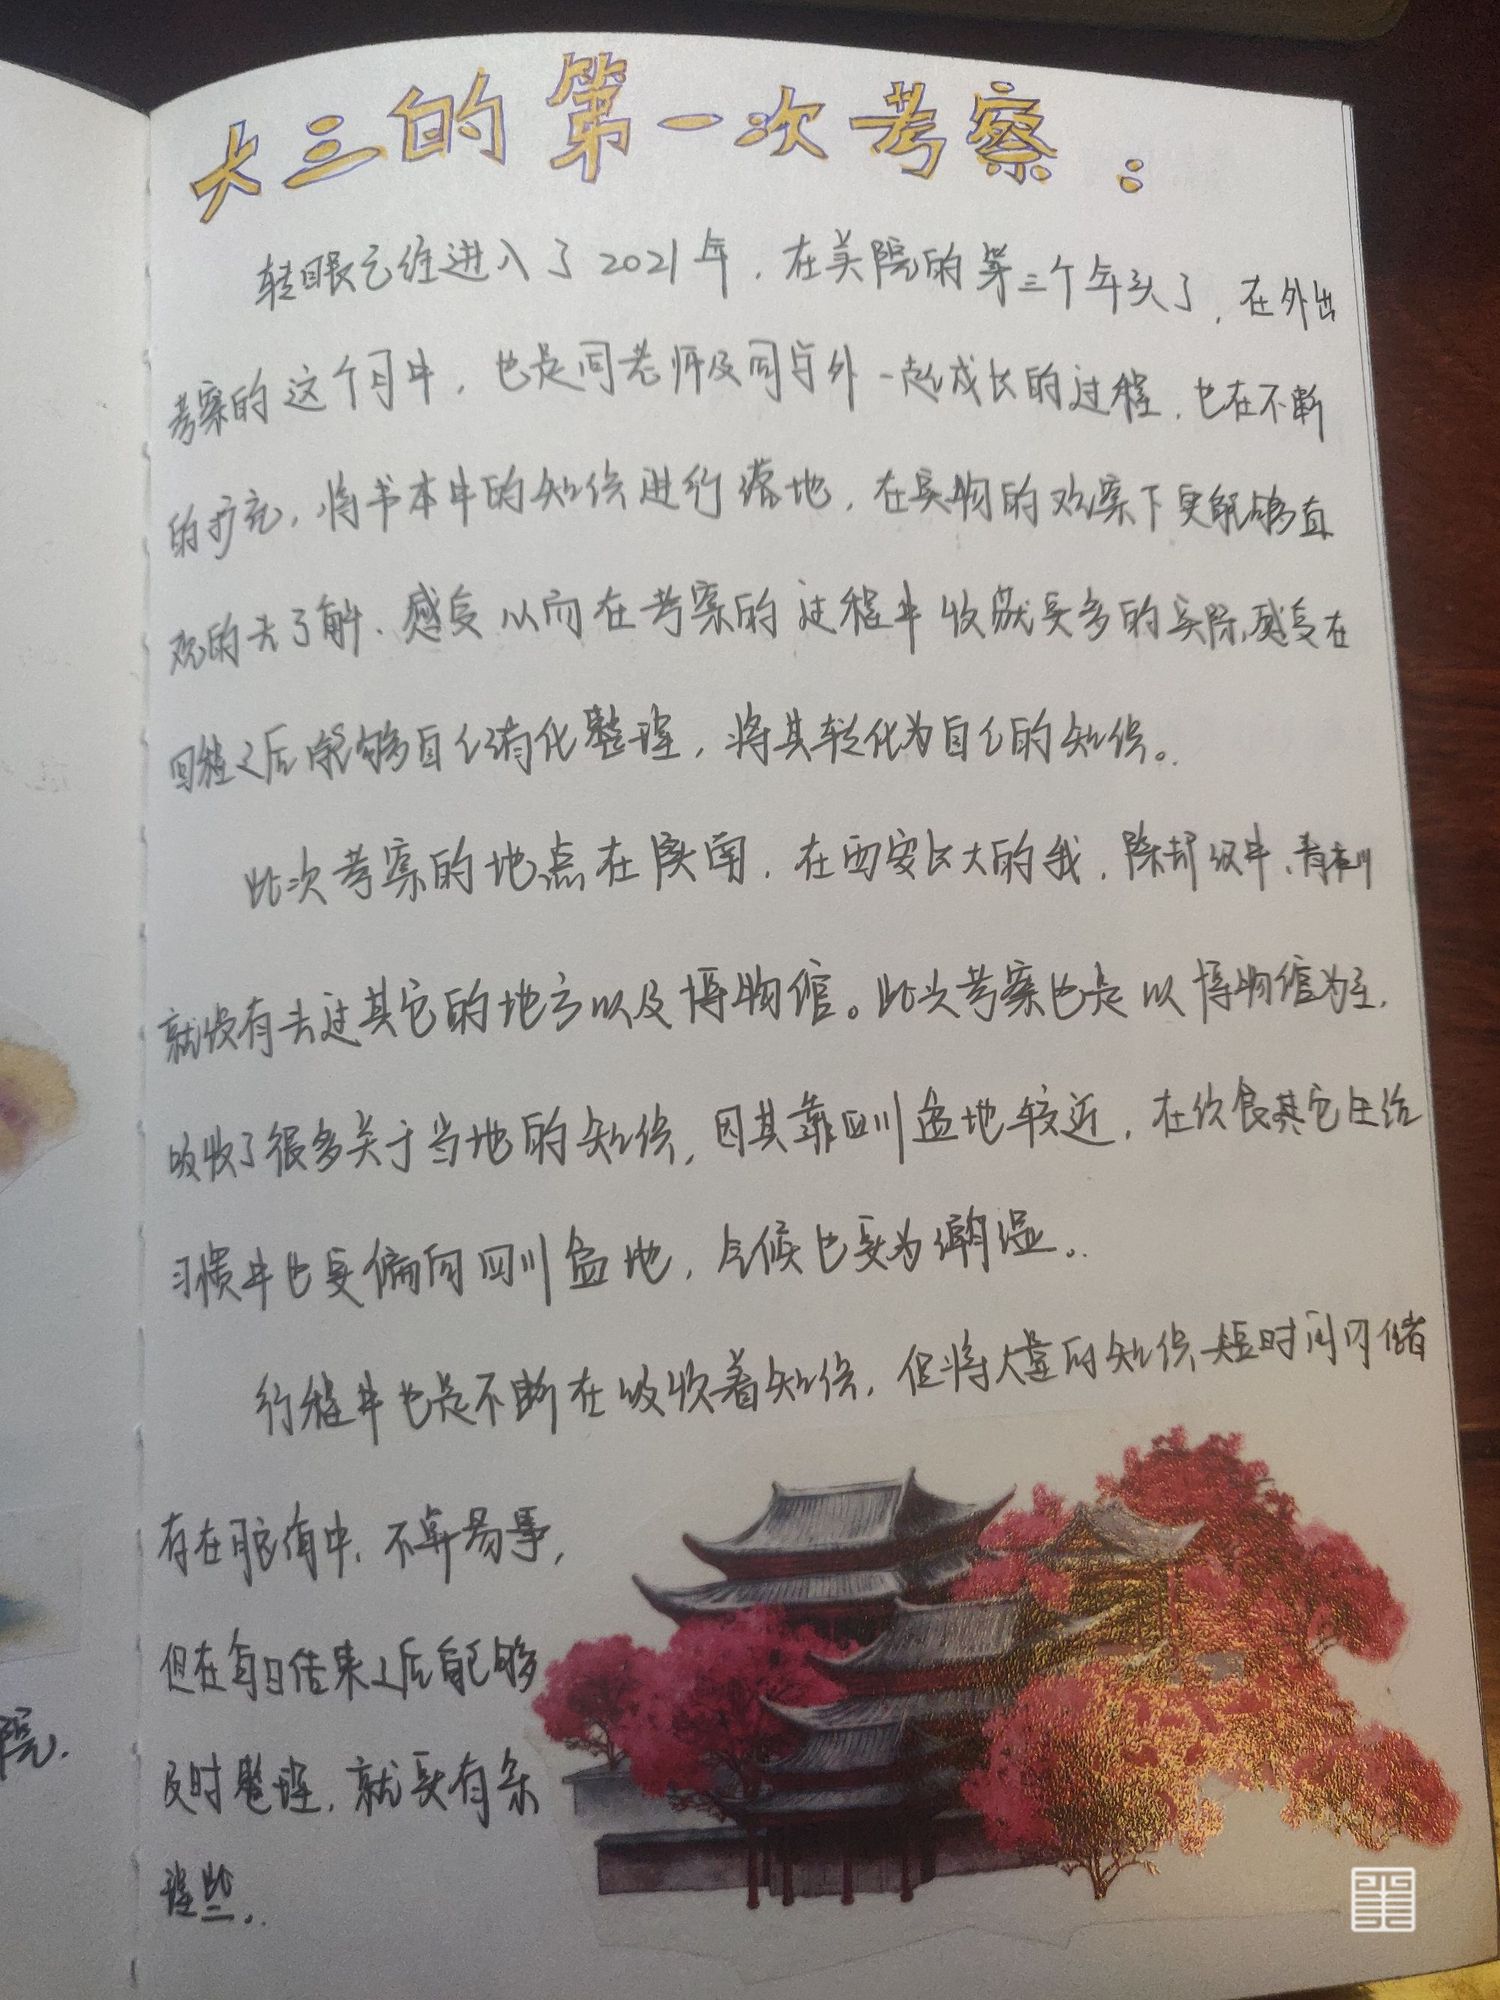 大三的第一次考察：
转眼已经进入了2021年，在美院的第三个年头了，在外出
考察的这个月中，也是同老师及同学外一起成长的过程，也在不断
的扩充，将书本中的知识进行落地，在实物的观察下更能够直
观的去了解、感受以而在考察的过程中收获更多的实际感受在
回程之后能够自己消化整理，将其转化为自己的知识。
此次考察的地点在陕南，在西安长大的我，除却汉中、青木川
就没有去过其它的地方以及博物馆。此次考察也是以博物馆为主，
吸收了很多关于当地的知识，因其靠四川盆地较近，在饮食其它生活
习惯中也更偏向四川盆地，气候也更为潮湿。
行程中也是不断在吸收着知识，但将大量的知识短时间内储
存在脑海中，不算易事，
但在每日结束之后能够
及时整理，就更有条
理些。
院.